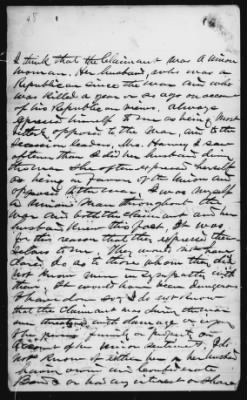 I think that the Claimant was a Union
woman. Her husband, who was a
Republican since the war and who
was killed a year or so ago on account
of his Republican views, always
expressed himself to me as being most
bitterly opposed to the war, and to the
Secession leaders, Mrs. Harvey I saw
oftener than I did her husband during
the war. She often expressed herself
as being in favor of the Union and
opposed to the war. I was myself
a Union man throughout the
war and both the claimant and her
husband knew this fact. It was
for this reason that they expressed them-
selves to me. They would not
dare do so to those whom they did
not know were in sympathy with
them. It would have been dangerous
to have done so. I do not know
that the claimant was during the war
ever threatened with damage or injury
to her person family or property on
account of her Union sentiments. I do
not know of either her or her husband
having owned any Confederate
Bonds or had any interest or share